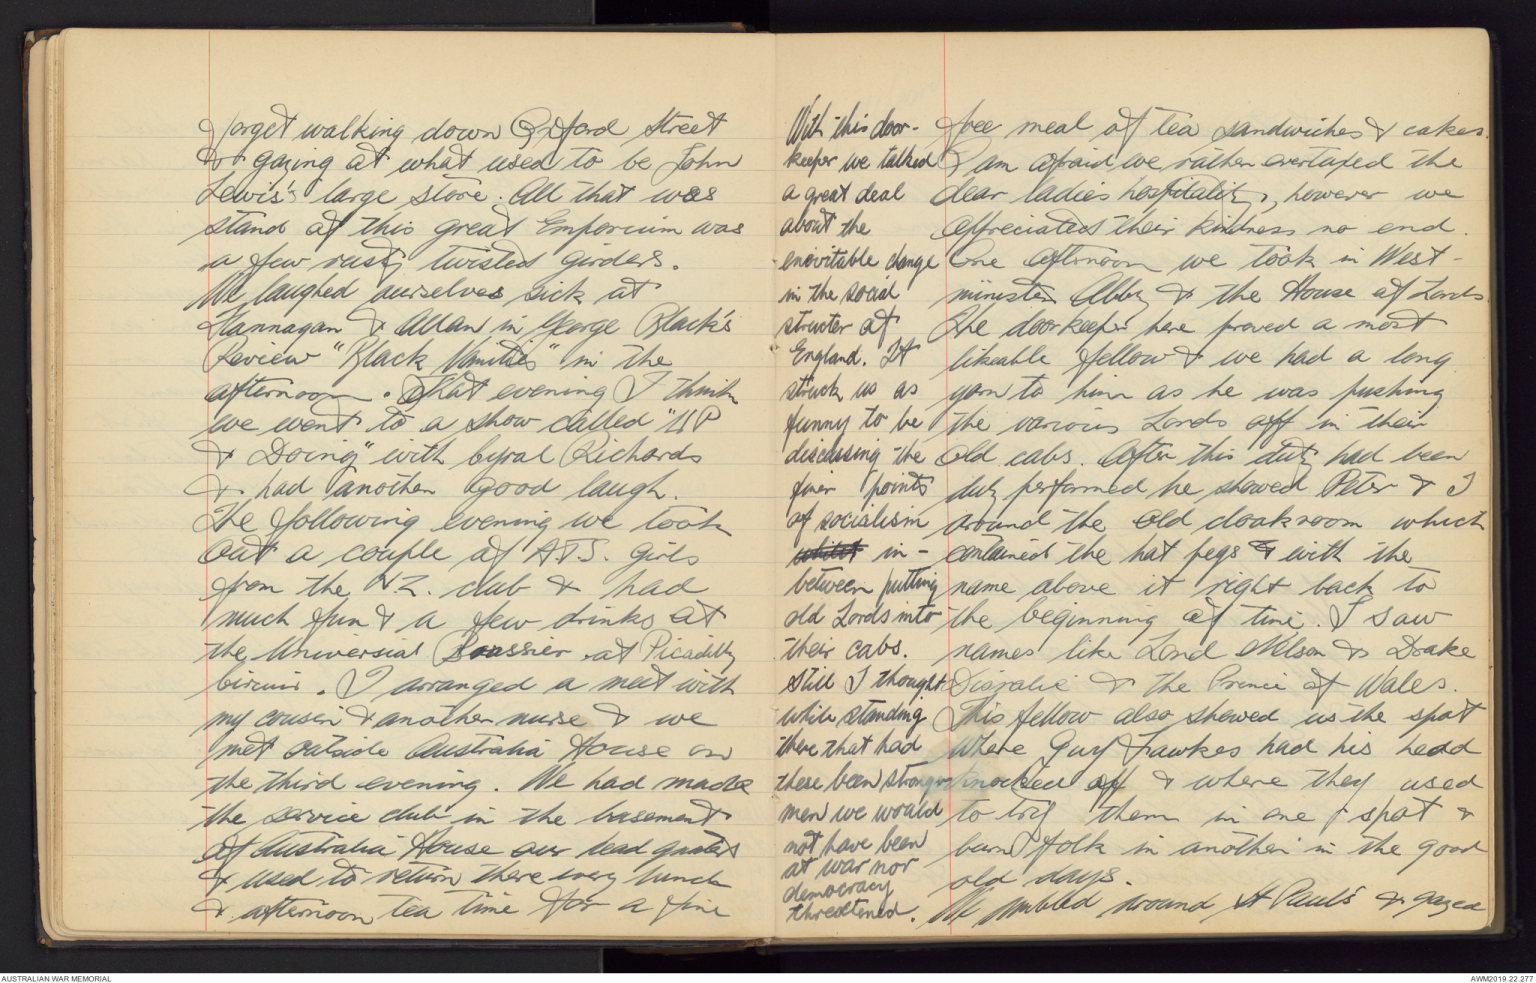 forget walking down Oxford Street
& gazing at what used to be John
Lewis's large store. All that was
stand of this great Emporium was
a few rusty twisted girders.
We laughed ourselves sick at
Flannagan & Allan in George Black's
Review "Black Vanities" in the
afternoon. That evening I think
we went to a show called "UP
& Doing" with Cyral Richards
& had another good laugh.
The following evening we took
out a couple of A.T.S. girls
from the N.Z. club & had
much fun & a few drinks at
the Universial Brassier at Picadilly
Circus. I arranged a meet with
my cousin & another nurse & we
met outside Australia House on
the third evening. We had made
the service club in the basement
of Australia House our head quaters
& used to return there every lunch
& afternoon tea time for a fine
With this door-
keeper we talked
a great deal
about the
enevitable change
in the social
structer of
England. It
struck us as
funny to be
discussing the
finer points
of socialism
whilst in-
between putting
old Lords into
their cabs.
Still I thought
while standing
there that had
these been stronger
men we would
not have been
at war nor
democracy
threatened.
free meal of tea sandwiches & cakes.
I am afraid we rather overtaxed the
dear ladies hospitality, however we
appreciated their kindness no end.
One afternoon we took in West-
minister Abby & the House of Lords.
The doorkeeper here proved a most
likeable fellow & we had a long
yarn to him as he was pushing
the various Lords off in their
old cabs. After this duty had been
duly performed he showed Peter & I
around the old cloakroom which
contained the hat pegs & with the
name above it right back to
the beginning of time. I saw
names like Lord Nelson & Drake
Disralie & the Prince of Wales.
This fellow also showed us the spot
where Guy Fawkes had his head
knocked off & where they used
to try them in one spot &
burn folk in another in the good
old days.
We ambled around St Paul's & gazed
AUSTRALIAN WAR MEMORIAL
AWM2019.22.277